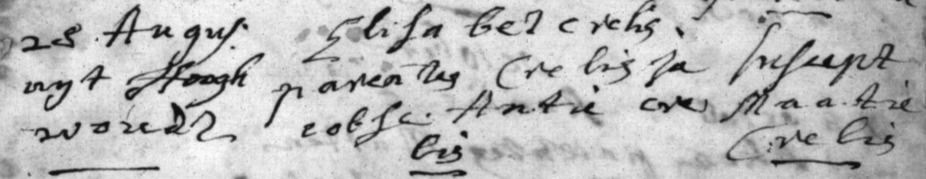 28 Augus. Elisabet crelis. Suscept
uyt Hoogh parentes Crelis Ja
woudt cobse. Antie cre Maatie
lis Crelis